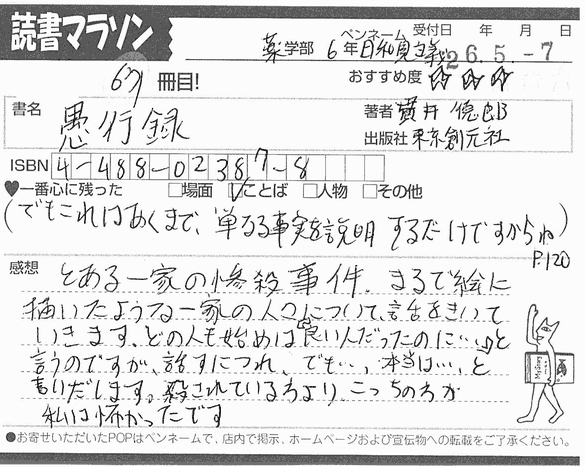 読書マラソン
ペンネーム 受付日 年 月 日
薬学部 6年 日和見主義 26.5.-7
冊目!
おすすめ度 ☆☆☆
書名 愚行録
著者 貫井 徳郎
出版社 東京創元社
ISBN 4-488-02387-8
♥一番心に残った □場面 ☑ことば □人物 □その他
(でもこれはあくまで、単なる事実を説明するだけですからね)
P.120
感想 とある一家の惨殺事件。まるで絵に
描いたような一家の人々について、話をきいて
いきます。どの人も始めは良い人だったのに…と
言うのですが、話すにつれ、でも…、本当は…、と
言いだします。殺されている方より、こっちの方が
私は怖かったです
●お寄せいただいたPOPはペンネームで、店内で掲示、ホームページおよび宣伝物への転載をご了承ください。